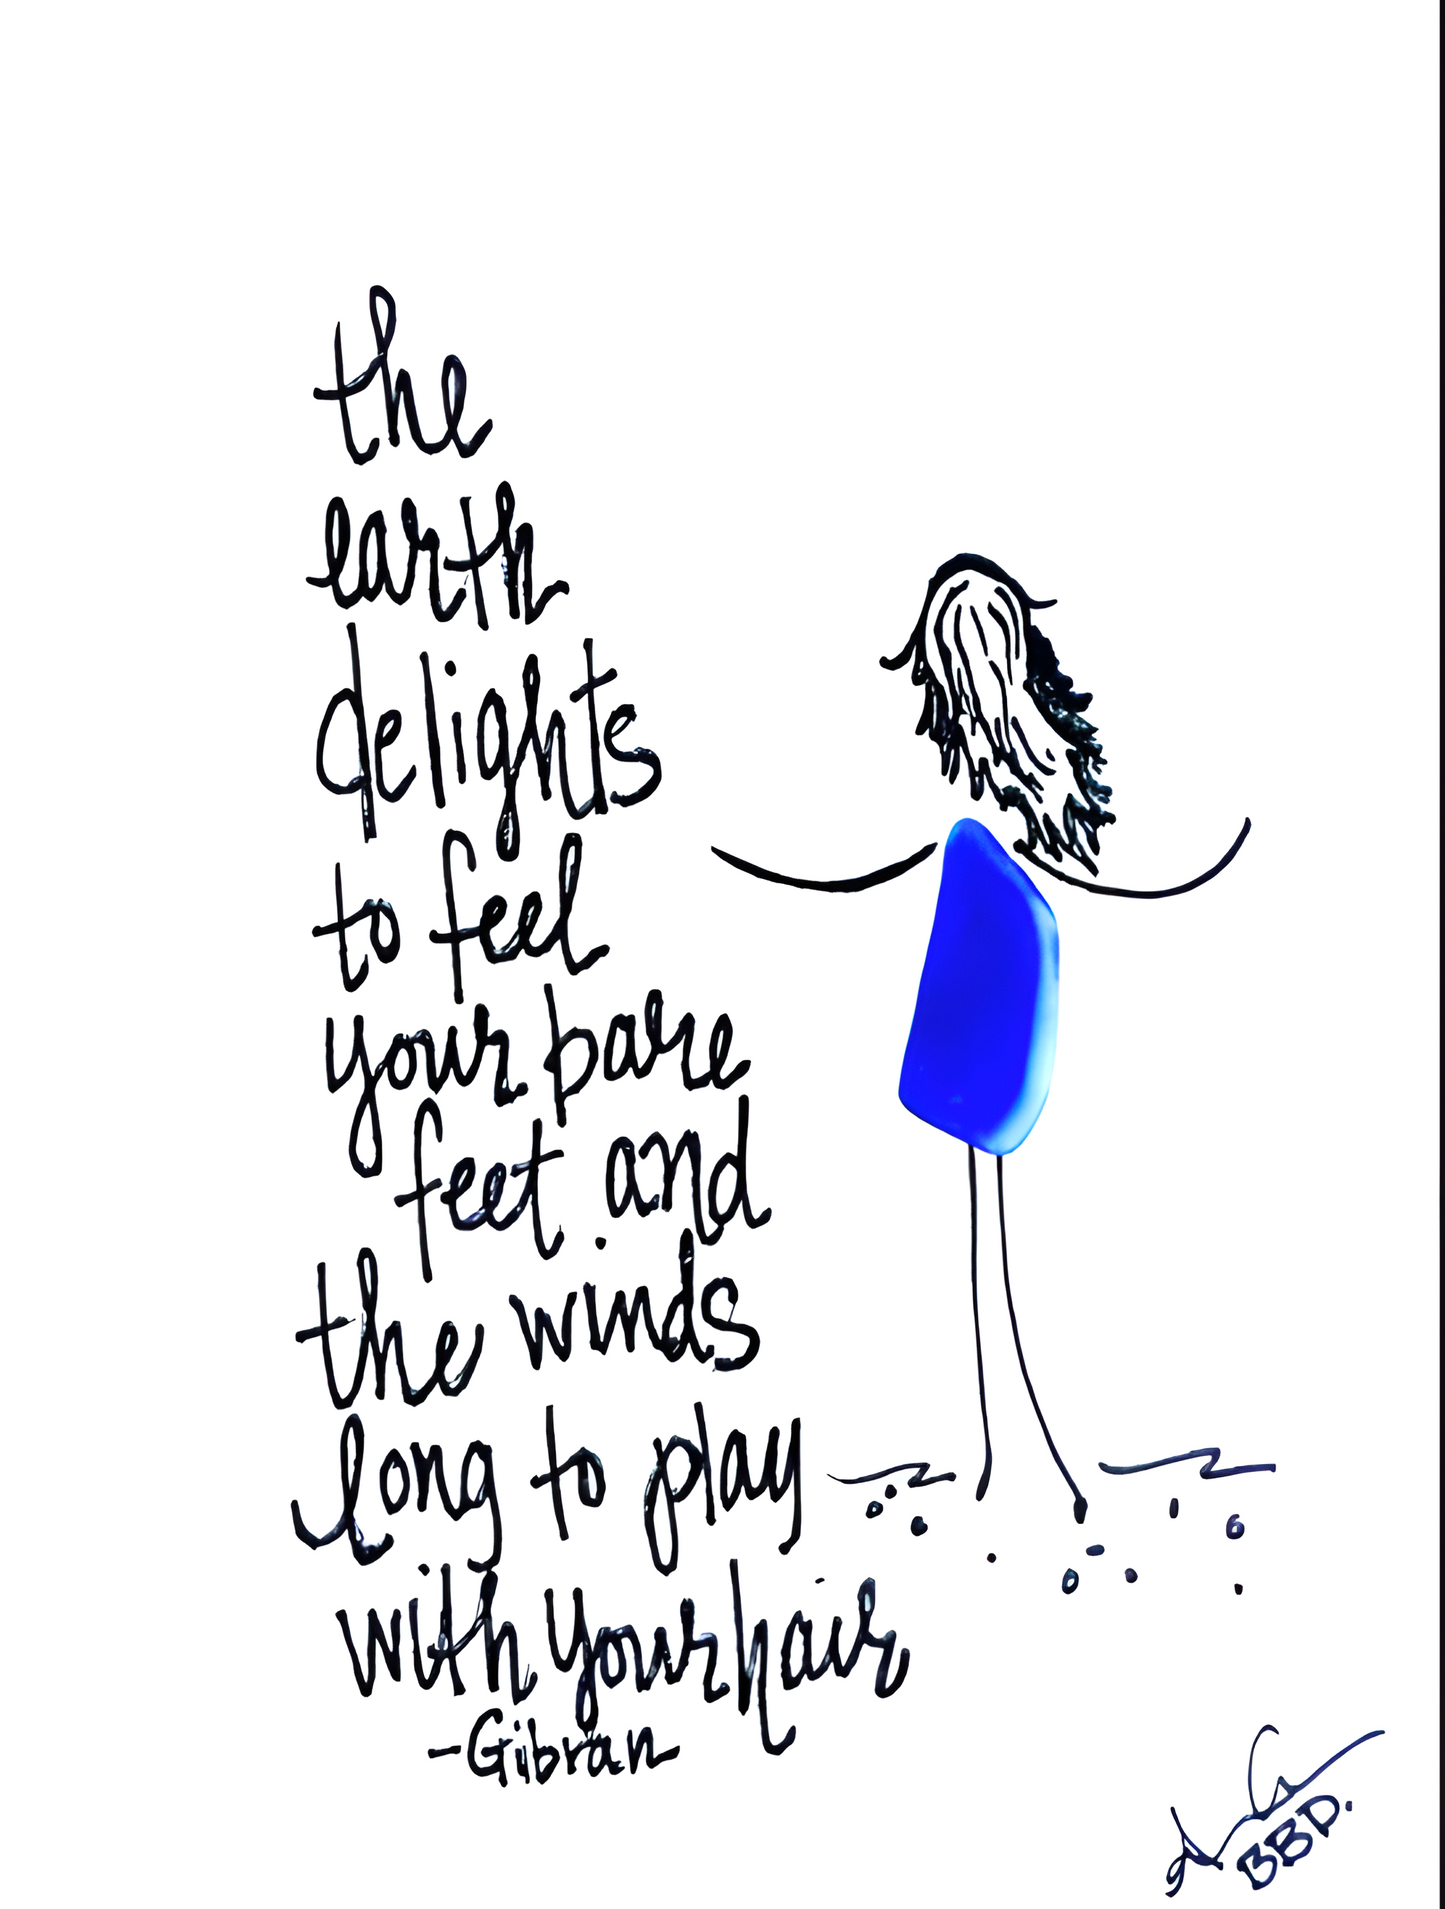 the
earth
delights
to feel
your bare
feet and
the winds
long to play
with your hair
-Gibran
BBD.